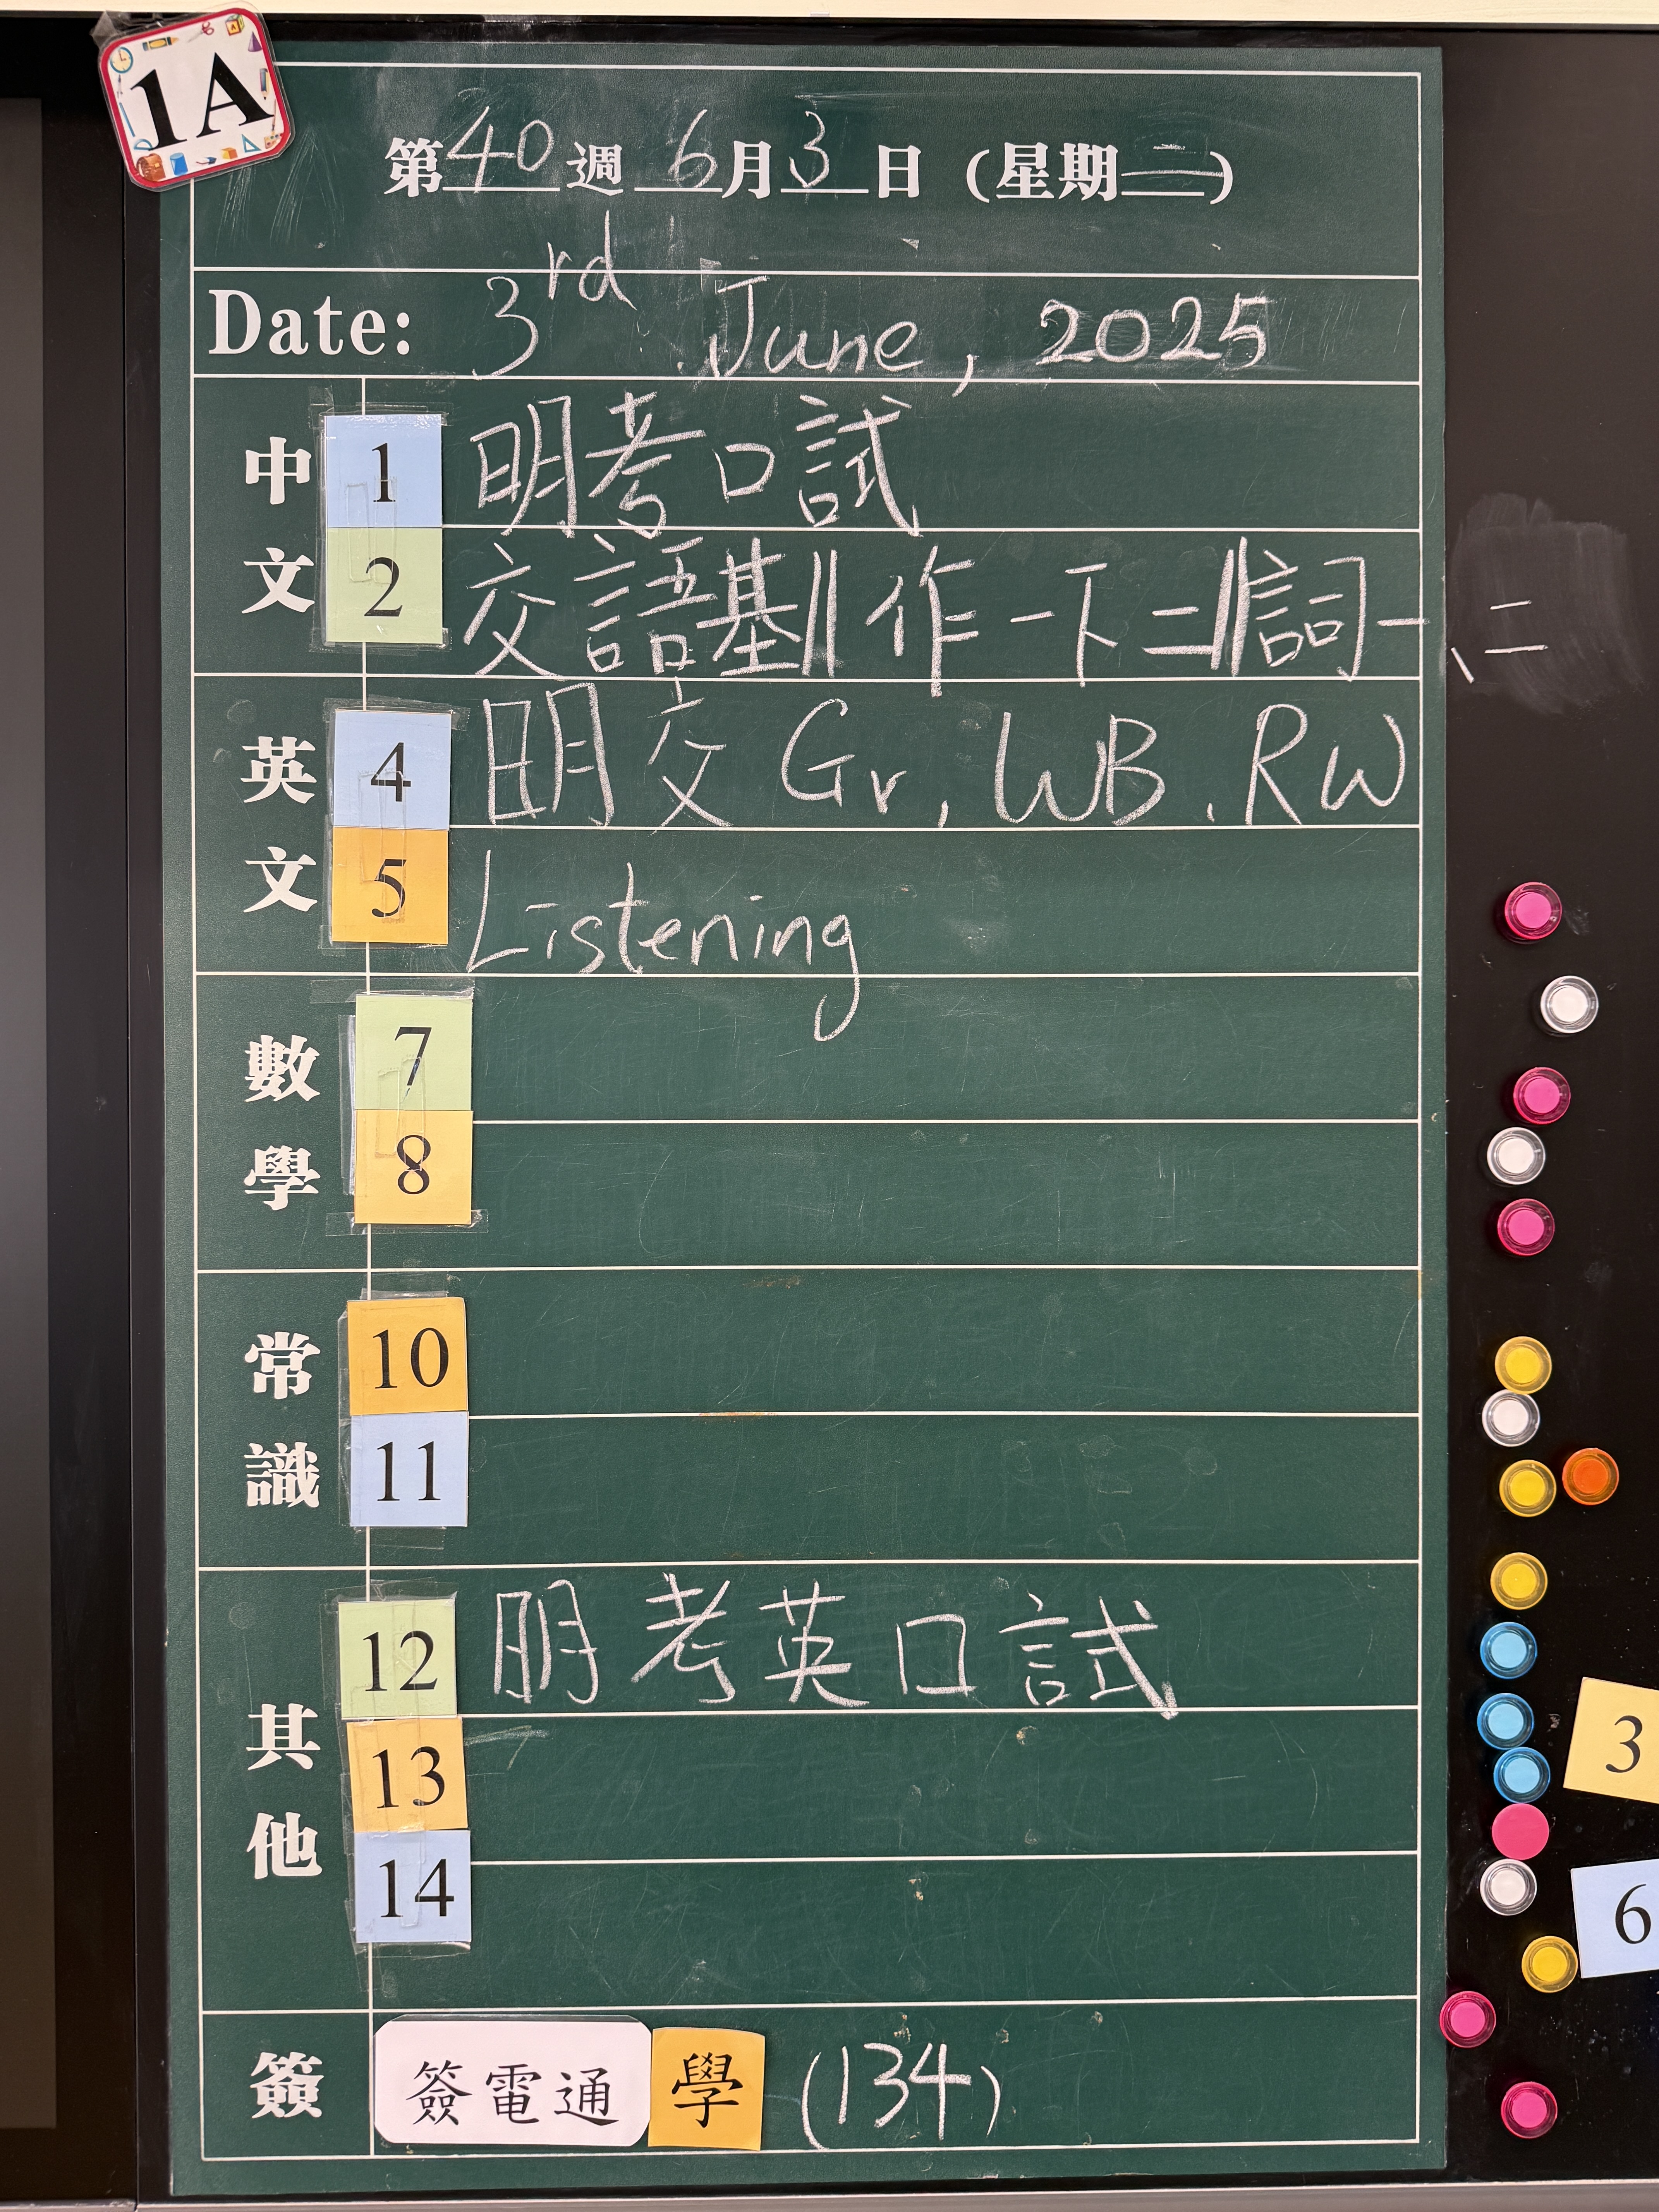 1A
第40週 6月3日 (星期二)
Date: 3rd June, 2025
中文
1 明考口試
2 交語基||作一下二||詞一、二
英文
4 明交 Gr, WB, RW
5 Listening
數學
7
8
常識
10
11
其他
12 明考英口試
13
14
簽 簽電通 學 (134)
3
6